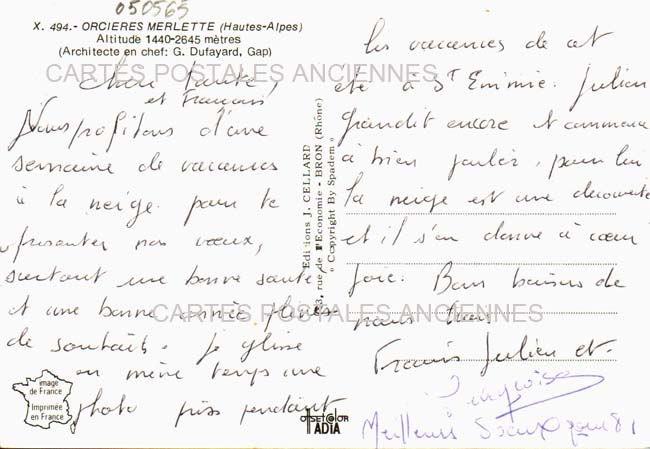 050565
X. 494.- ORCIERES MERLETTE (Hautes-Alpes)
Altitude 1440-2645 mètres
(Architecte en chef: G. Dufayard, Gap)
CARTES POSTALES ANCIENNES
Chère
et François
Nous profitons d'une
semaine de vacances
à la neige pour te
présenter nos voeux,
surtout une bonne santé
et une bonne année pleine
de souhaits. je glisse
en même temps une
photo prise pendant
image
de France
Imprimée
en France
Editions J. CELLARD
rue de l'Economie - BRON (Rhône)
« Copyright By Spadem »
OFFSET COLOR
TADIA
les vacances de cet
été à St Julien
grandit encore et commence
à bien parler, pour lui
la neige est une découverte
et il s'en donne à coeur
joie. Bons baisers de
nous tous
CARTES POSTALES ANCIENNES
Francis Julien et
Meilleurs Voeux pour 81